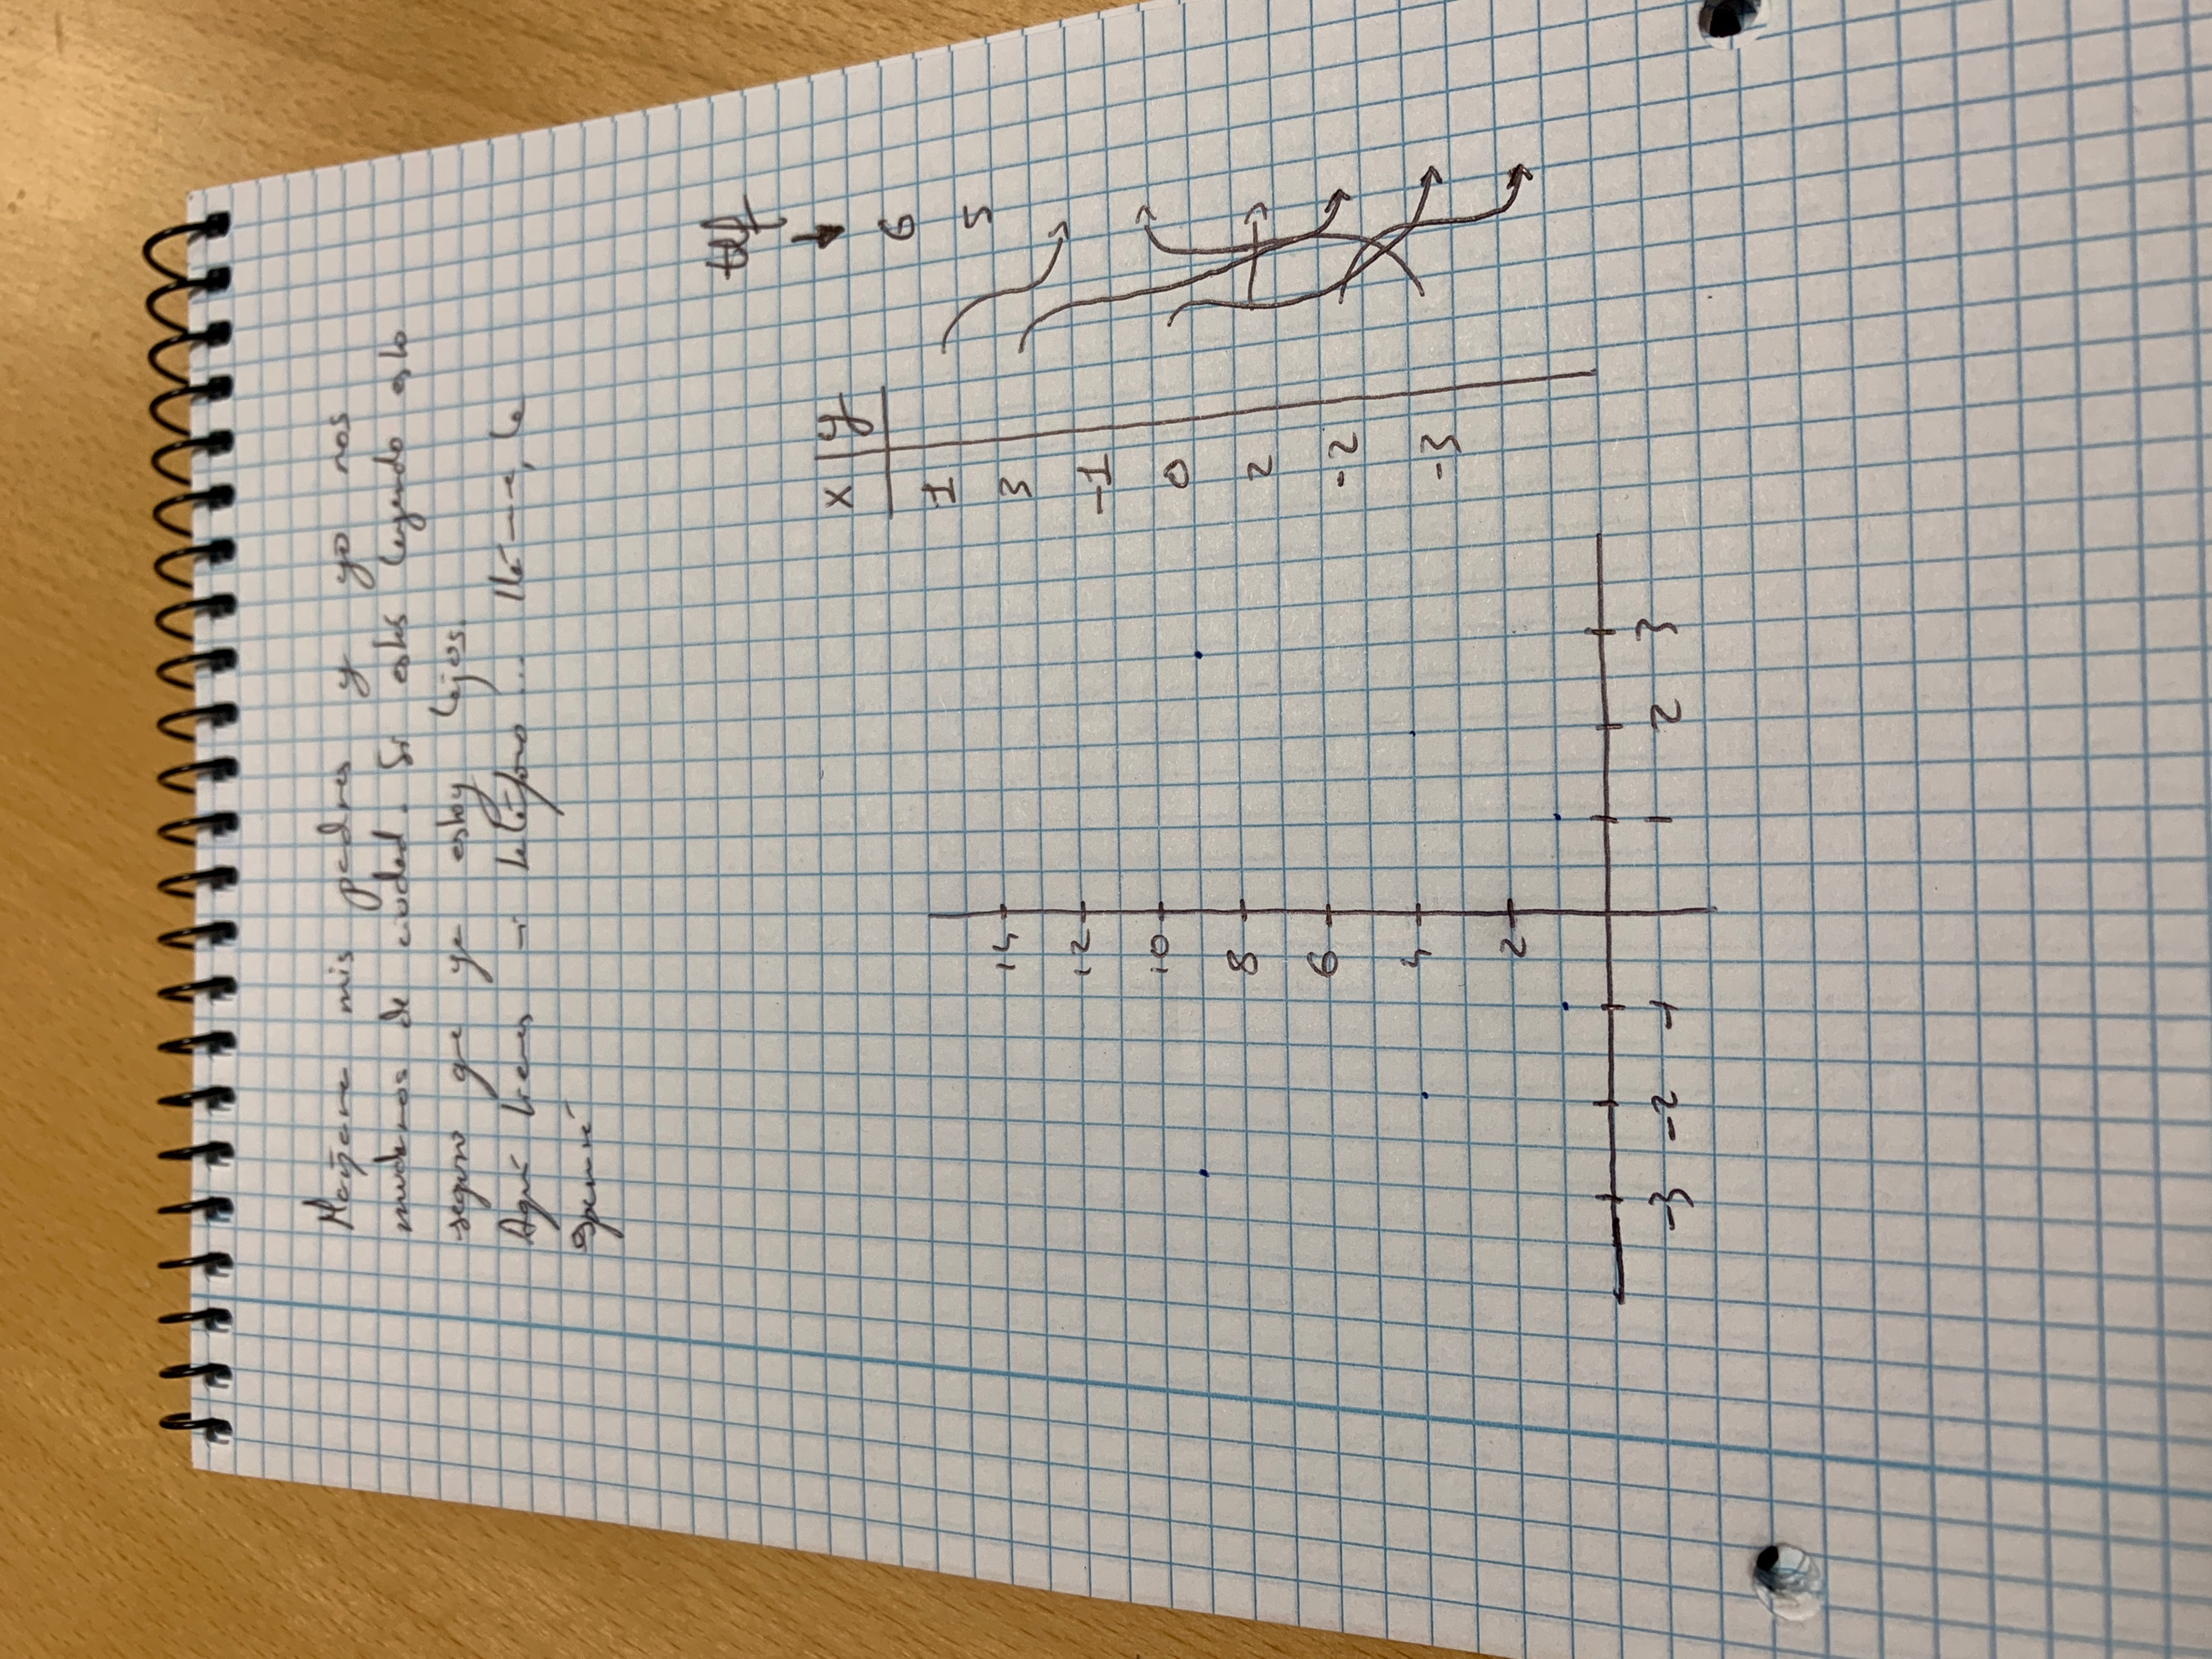 Mañana mis padres y yo nos
mudamos de ciudad. Si estás leyendo esto
seguro que ya estoy lejos.
Aquí tienes mi teléfono... llámame, lo
tlf
6
5
x y
1
3
-1
0
2
-2
-3
14
12
10
8
6
4
2
-3 -2 -1 1 2 3